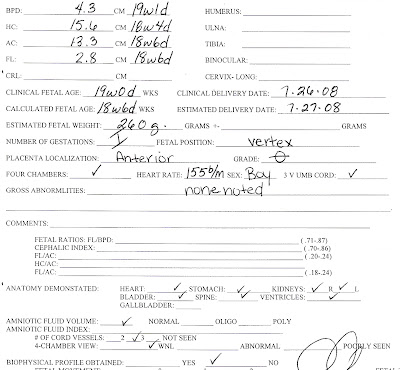 BPD: 4.3 CM 19w1d HUMERUS:
HC: 15.6 CM 18w4d ULNA:
AC: 13.3 CM 18w6d TIBIA:
FL: 2.8 CM 18w6d BINOCULAR:
CRL: CM CERVIX- LONG:
CLINICAL FETAL AGE: 19w0d WKS CLINICAL DELIVERY DATE: 7-26-08
CALCULATED FETAL AGE: 18w6d WKS ESTIMATED DELIVERY DATE: 7-27-08
ESTIMATED FETAL WEIGHT: 260g. GRAMS +- GRAMS
NUMBER OF GESTATIONS: I FETAL POSITION: vertex
PLACENTA LOCALIZATION: Anterior GRADE: 0
FOUR CHAMBERS: ✓ HEART RATE: 155b/m SEX: Boy 3 V UMB CORD: ✓
GROSS ABNORMLITIES: none noted
COMMENTS:
FETAL RATIOS: FL/BPD: (.71-.87)
CEPHALIC INDEX: (.70-.86)
FL/AC: (.20-.24)
HC/AC:
FL/AC: (.18-.24)
ANATOMY DEMONSTATED: HEART: ✓ STOMACH: ✓ KIDNEYS: ✓ R ✓ L
BLADDER: ✓ SPINE: ✓ VENTRICLES: ✓
GALLBLADDER:
AMNIOTIC FLUID VOLUME: ✓ NORMAL OLIGO POLY
AMNIOTIC FLUID INDEX:
# OF CORD VESSELS: 2 ✓ 3 NOT SEEN
4-CHAMBER VIEW: ✓ WNL ABNORMAL POORLY SEEN
BIOPHYSICAL PROFILE OBTAINED: YES ✓ NO
FETAL MOVEMENT